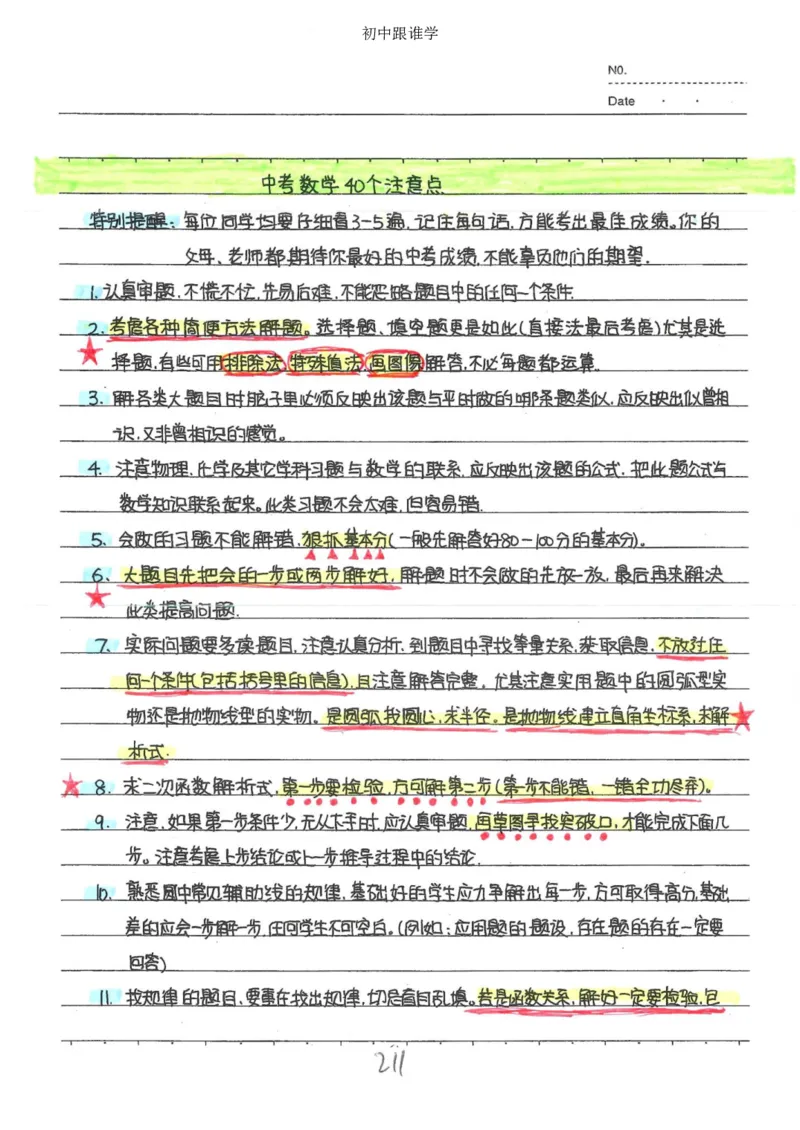 初中跟谁学
NO.
Date · ·
中考数学40个注意点
特别提醒:每位同学均要仔细看3-5遍,记住每句话,方能考出最佳成绩。你的
父母、老师都期待你最好的中考成绩,不能辜负他们的期望.
1.认真审题,不慌不忙,先易后难,不能忽略题目中的任何一个条件.
2、考虑各种简便方法解题。选择题、填空题更是如此(直接法最后考虑)尤其是选
择题,有些可用排除法,特殊值法,画图像解答,不必每题都运算.
3、解各类大题目时脑子里必须反映出该题与平时做的哪条题类似,应反映出似曾相
识,又非曾相识的感觉。
4、注意物理,化学及其它学科习题与数学的联系,应反映出该题的公式.把此题公式与
数学知识联系起来。此类习题不会太难,但容易错.
5、会做的习题不能解错,狠抓基本分(一般先解答好80-100分的基本分)。
6、大题目先把会的一步或两步解好,解题时不会做的先放一放,最后再来解决
此类提高问题.
7、实际问题要多读题目,注意认真分析、到题目中寻找等量关系,获取信息,不放过任
何一个条件(包括括号里的信息),且注意解答完整,尤其注意实用题中的圆弧型实
物还是抛物线型的实物。是圆弧找圆心,求半径。是抛物线建立直角坐标系,求解
析式.
8、求二次函数解析式,第一步要检验,方可解第二步(第一步不能错,一错全功尽弃)。
9、注意,如果第一步条件少,无从下手时,应认真审题,画草图寻找突破口,才能完成下面几
步。注意考虑上步结论或上一步推导过程中的结论.
10、熟悉圆中常见辅助线的规律,基础好的学生应力争解出每一步,方可取得高分,基础
差的应会一步解一步,任何学生不可空白。(例如:应用题的题设,存在题的存在一定要
回答)
11、找规律的题目,要重在找出规律,切忌盲目乱填。若是函数关系,解好一定要检验,包
211